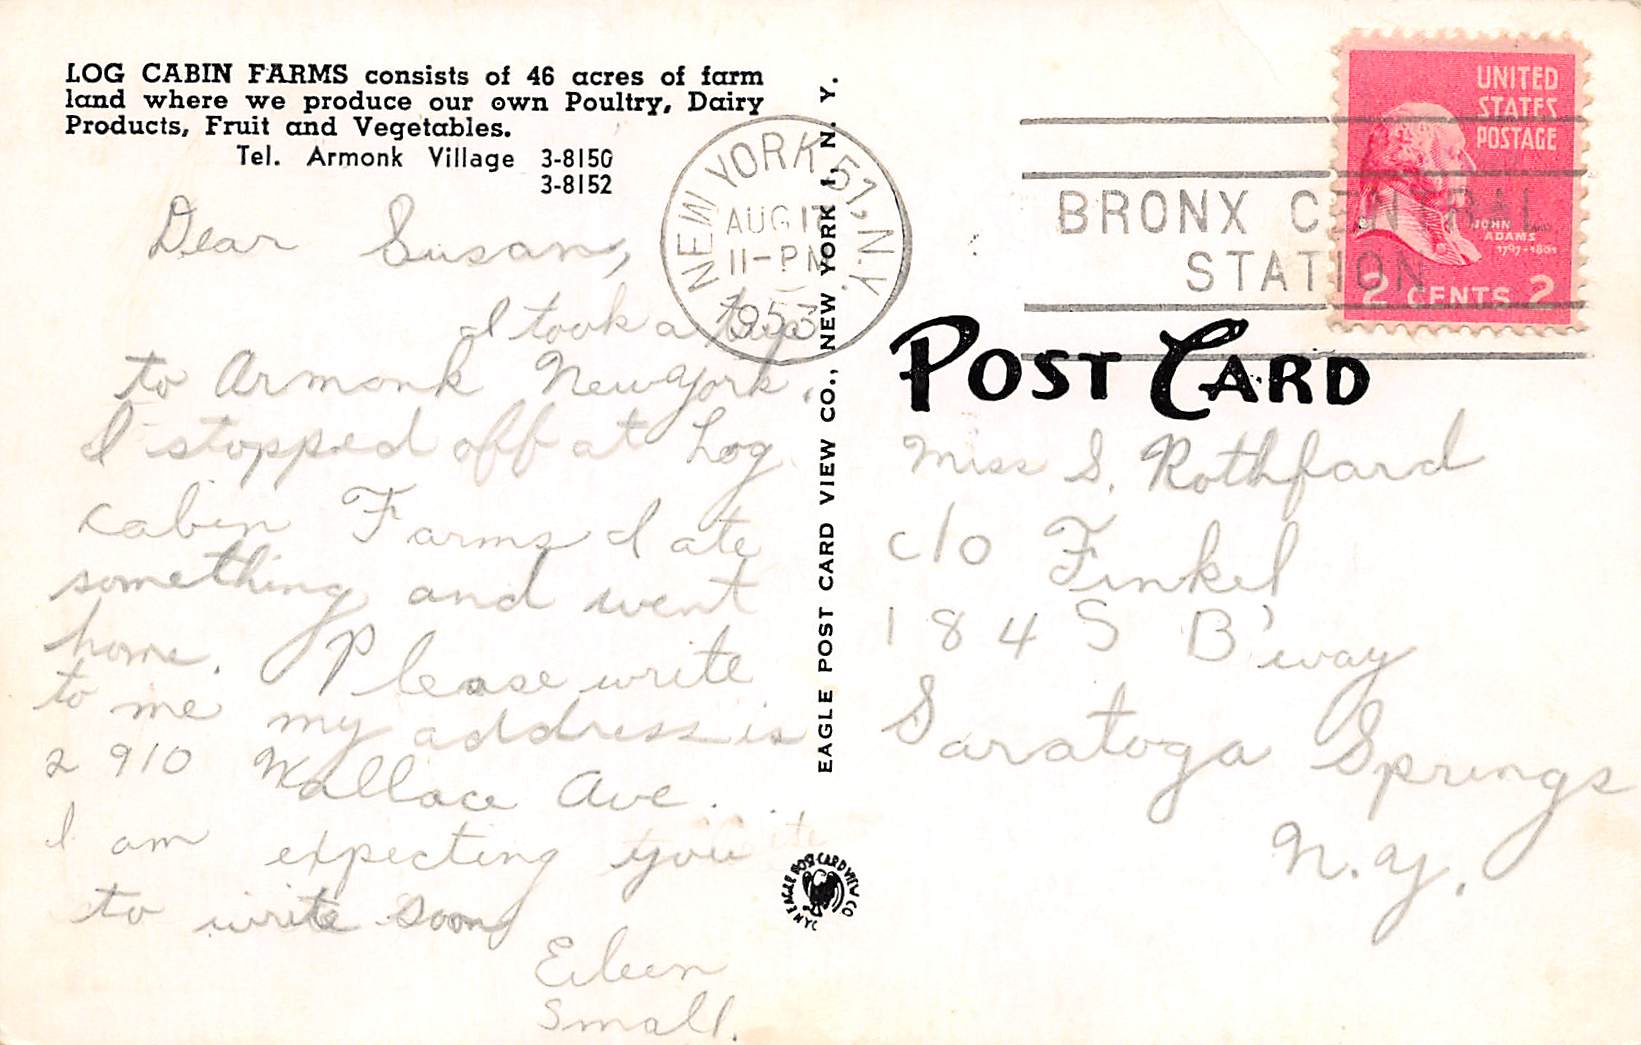 LOG CABIN FARMS consists of 46 acres of farm
land where we produce our own Poultry, Dairy
Products, Fruit and Vegetables.
Tel. Armonk Village 3-8150
3-8152
Dear Susan,
I took a trip
to Armonk New York.
I stopped off at Log
Cabin Farms I ate
something and went
home. Please write
to me my address is
2910 Wallace Ave.
I am expecting you
to write soon
Eileen
Small.
EAGLE POST CARD VIEW CO., NEW YORK 1, N. Y.
EAGLE POST CARD VIEW CO
NYC
NEW YORK 57, N.Y.
AUG 17
11-PM
1953
BRONX CENTRAL
STATION
UNITED
STATES
POSTAGE
JOHN
ADAMS
1797-1801
2 CENTS 2
POST CARD
Miss S. Rothfard
c/o Finkel
184 S B'way
Saratoga Springs
N.Y.